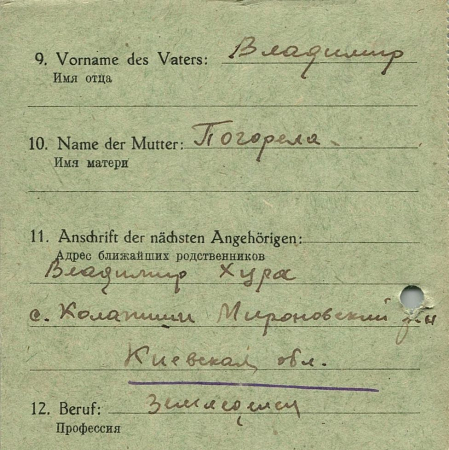 9. Vorname des Vaters: Владимир
Имя отца
10. Name der Mutter: Погорела
Имя матери
11. Anschrift der nächsten Angehörigen:
Адрес ближайших родственников
Владимир Хура
с. Колапиши Мироновский р-н
Киевская обл.
12. Beruf:
Профессия